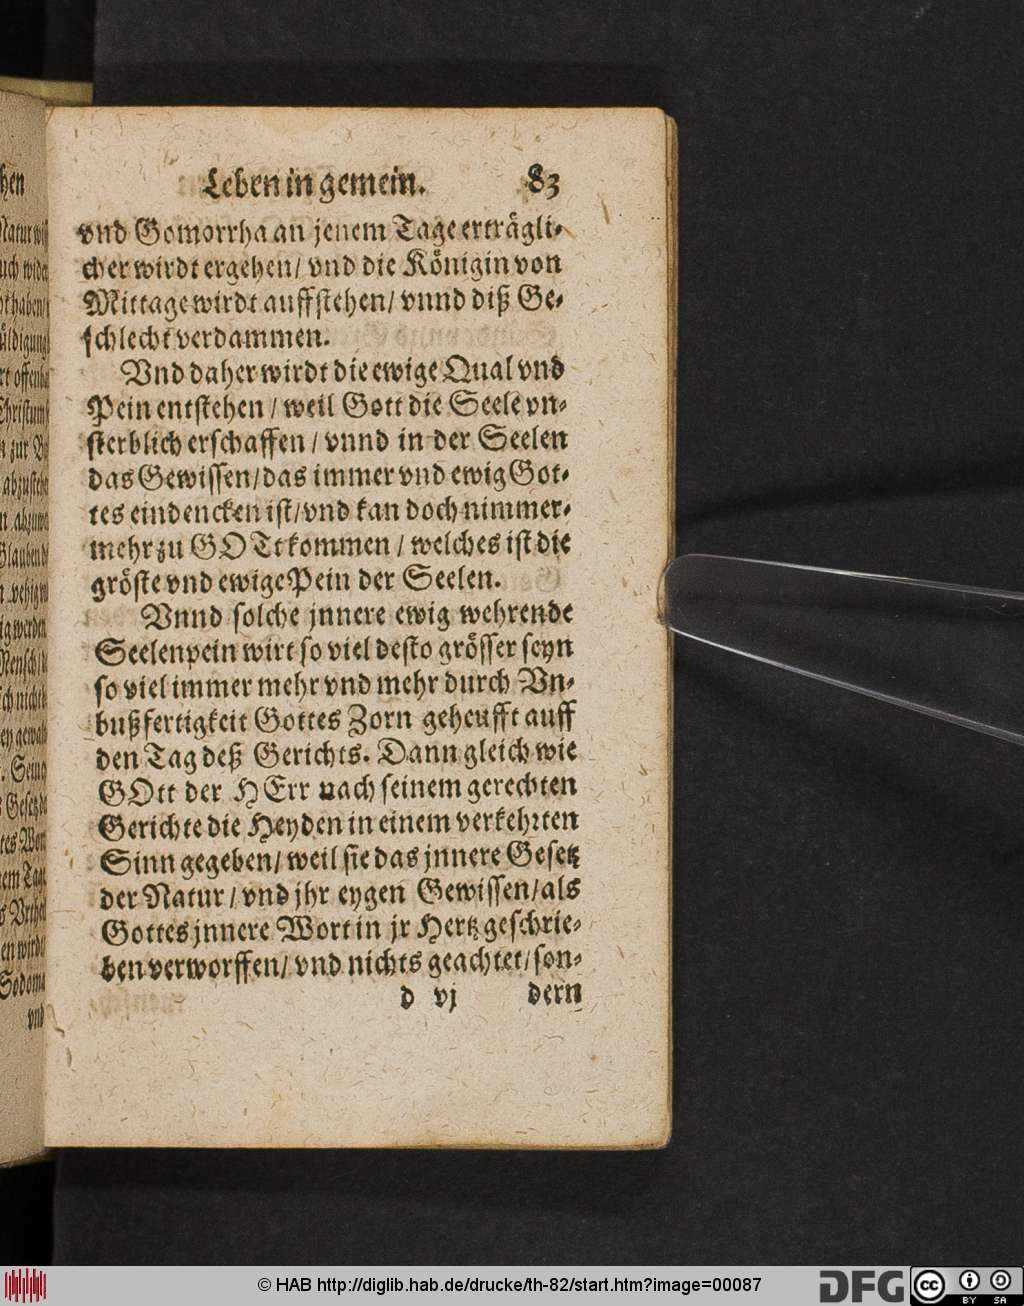 Leben in gemein. 83
vnd Gomorrha an jenem Tage erträgli-
cher wirdt ergehen/ vnd die Königin von
Mittage wirdt auffstehen/ vnnd diß Ge-
schlecht verdammen.
Vnd daher wirdt die ewige Qual vnd
Pein entstehen / weil Gott die Seele vn-
sterblich erschaffen / vnnd in der Seelen
das Gewissen/ das immer vnd ewig Got-
tes eindencken ist/ vnd kan doch nimmer-
mehr zu GOTt kommen / welches ist die
gröste vnd ewige Pein der Seelen.
Vnnd solche jnnere ewig wehrende
Seelenpein wirt so viel desto grösser seyn
so viel immer mehr vnd mehr durch Vn-
bußfertigkeit Gottes Zorn geheufft auff
den Tag deß Gerichts. Dann gleich wie
GOtt der HErr nach seinem gerechten
Gerichte die Heyden in einem verkehrten
Sinn gegeben/ weil sie das jnnere Gesetz
der Natur / vnd jhr eygen Gewissen/ als
Gottes jnnere Wort in jr Hertz geschrie-
ben verworffen/ vnd nichts geachtet/ son-
d vj dern
hen
Natur
uch wider
haben/
offenba
zur
Glauben
werden
Gesetz
Tag
Sodoma
vnd
© HAB http://diglib.hab.de/drucke/th-82/start.htm?image=00087
DFG
cc BY SA